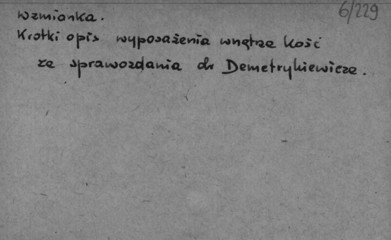 6/229
wzmianka.
Krótki opis wyposażenia wnętrz Kość
ze sprawozdania dr Demetrykiewicza.